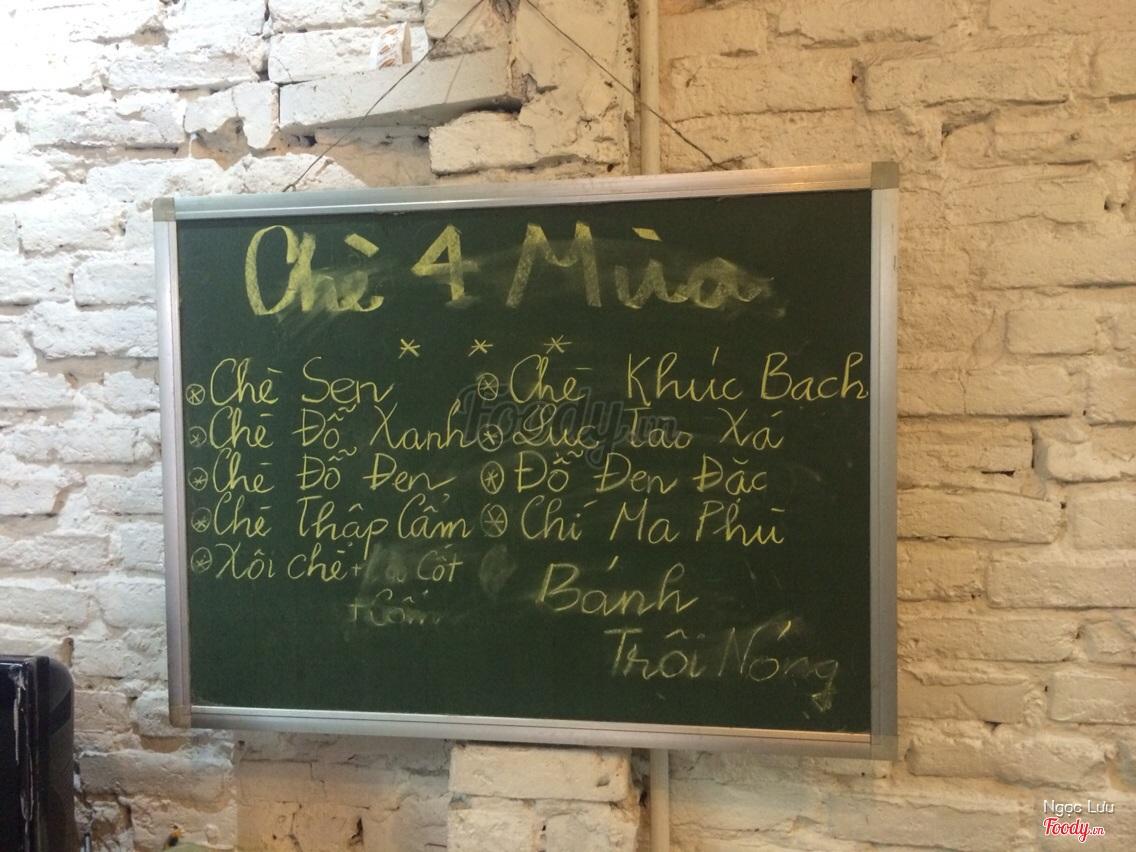 Chè 4 Mùa
Chè Sen
Chè Đỗ Xanh
Chè Đỗ Đen
Chè Thập Cẩm
Xôi chè + Cốt
+ Cốm
Chè Khúc Bạch
Lục Tào Xá
Đỗ Đen Đặc
Chí Ma Phù
Bánh
Trôi Nóng
Foody.vn
Ngọc Lưu
Foody.vn